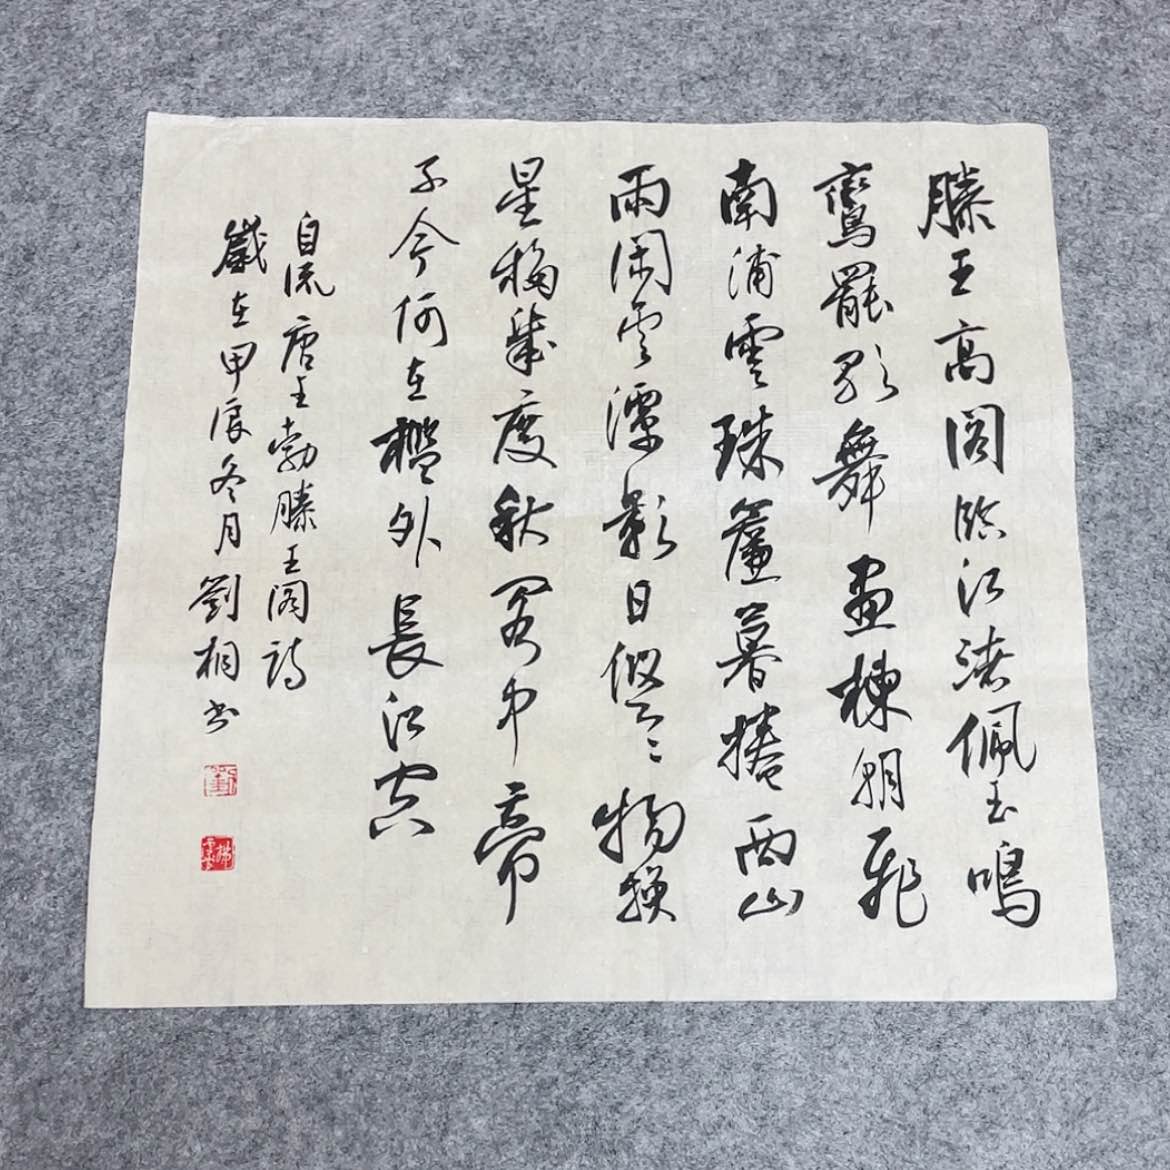 滕王高阁臨江渚佩玉鳴
鸞罷歌舞畫棟朝飛
南浦雲珠簾暮捲西山
雨閑雲潭影日悠悠物換
星移幾度秋閣中帝
子今何在檻外長江空
自流唐王勃滕王阁詩
歲在甲辰冬月劉桐书